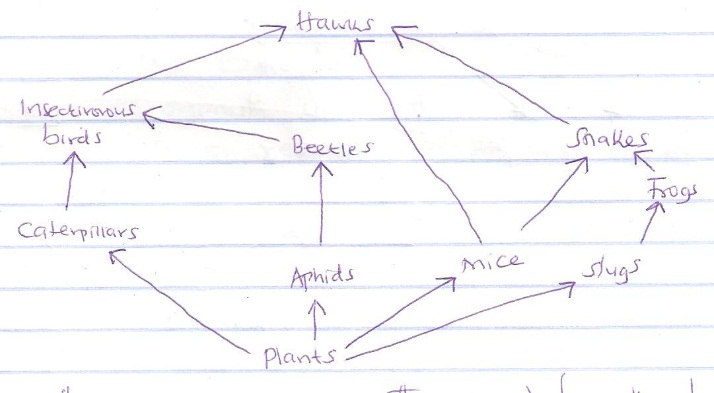 Hawks
Insectivorous
birds
Beetles
Snakes
Frogs
Caterpillars
Aphids
mice
slugs
Plants